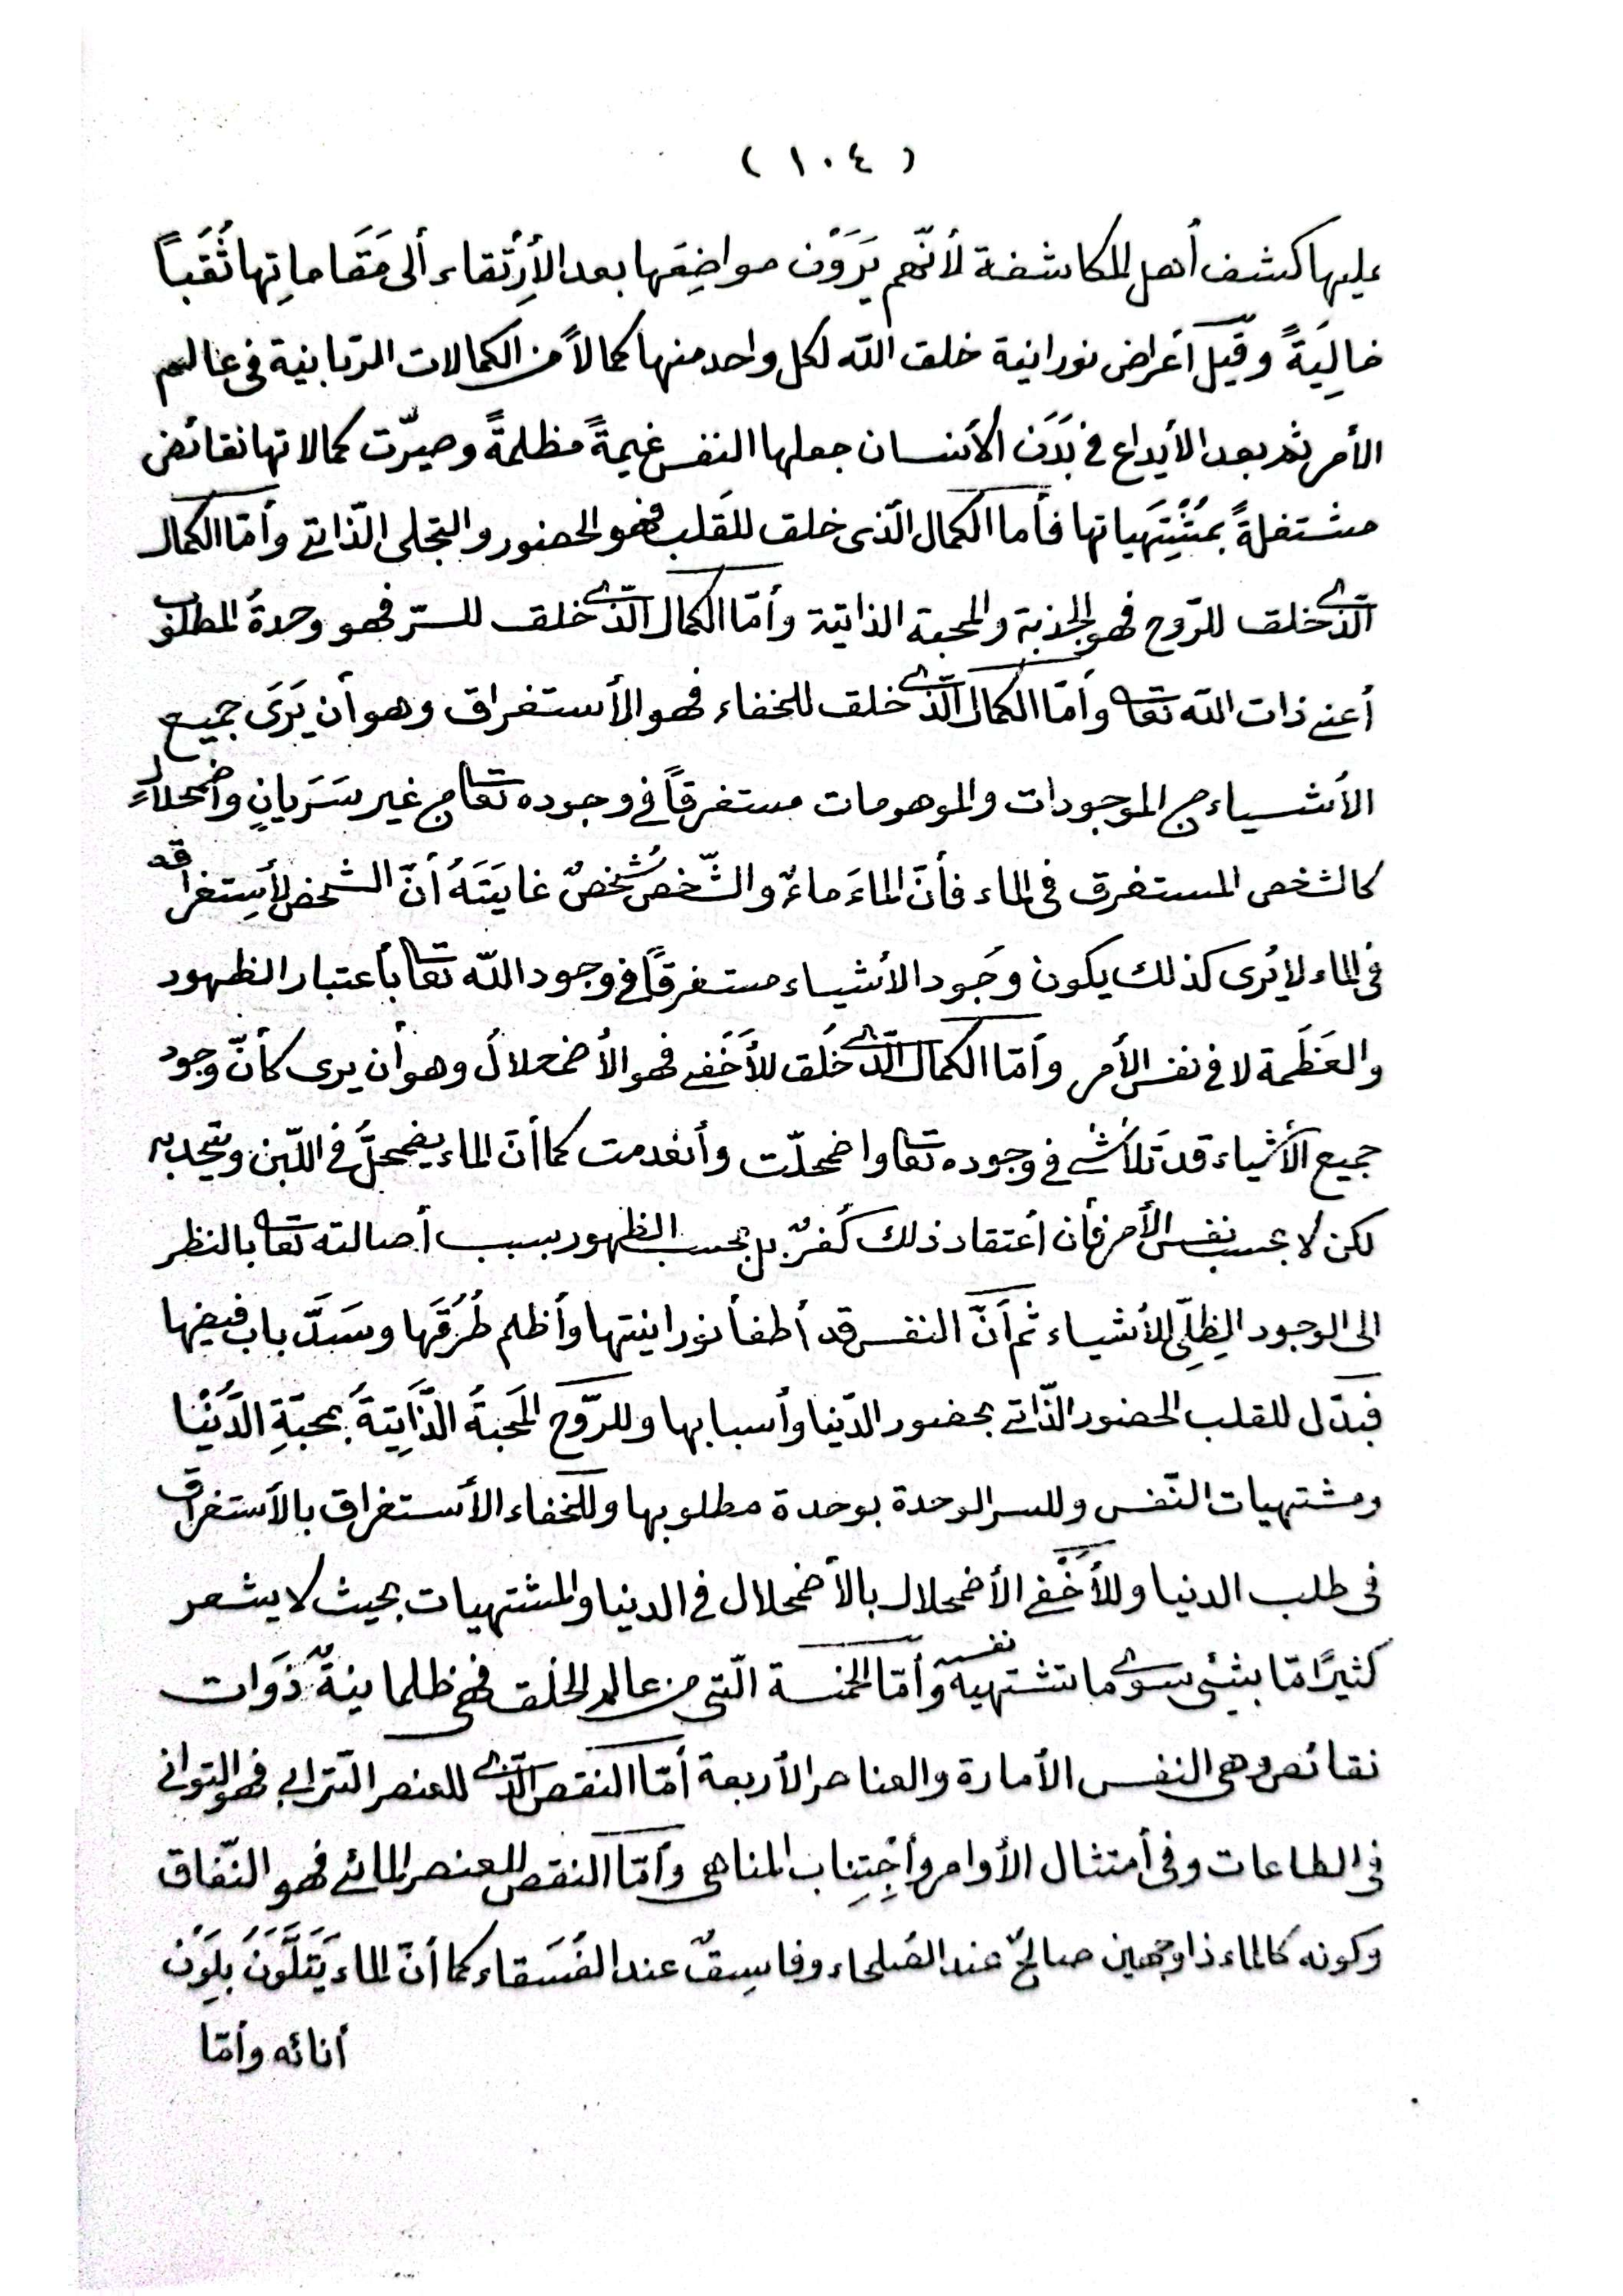 ( ١٠٤ )
عليها كشف أهل المكاشفة لأنّهم يَرَوْن مواضِعَها بعد الأرِتْقاء ألى مَقَاماتِها ثُقَباً
خالِيَةً وقيل أعراض نورانية خلق الله لكل واحد منها كمالاً من الكمالات الربّانية في عالم
الأمر ثم بعد الأيداع في بَدَن الأنسان جعلها النفس غيمةً مظلمةً وصيرّت كمالاتها نقائض
مشتغلةً بمُشْتَهياتها فأما الكمال الّذى خلق للقَلب فهو الحضور والتجلى الذّاتي وأمّا الكمال
الّذى خلق للرّوح فهو الجذبة والمحبة الذاتية وأمّا الكمال الّذى خلق للسّر فهو وحدةُ المطلوب
أعنى ذات الله تعا وأمّا الكمال الّذى خلق للخفاء فهو الأستغراق وهو أن يَرَى جميع
الأشياء من الموجودات والموهومات مستغرقاً في وجوده تعا من غير سَرَيانٍ واضمحلالٍ
كالشخص المستغرق في الماء فأنّ الماءَ ماءٌ والشّخصُ شخصٌ غايَتَهُ أنّ الشخص لأستِغراقه
في الماء لا يُرى كذلك يكون وجُود الأشياء مستغرقاً في وجود الله تعا بأعتبار الظهور
والعَظَمة لا في نفس الأمر وأمّا الكمال الّذى خلَق للأخْفى فهو الأضمحلالُ وهو أن يرى كأنّ وجود
جميع الأشياء قد تَلأشى في وجوده تعا واضمحلّت وأنعدمت كما أنّ الماء يضمحلُّ في اللّبن ويتحد به
لكن لا بحسب نفس الأمر فأن أعتقاد ذلك كُفرٌ بل بحسب الظهور بسبب أصالته تعا بالنظر
الى الوجود الظِلِّى للأشياء ثم أنَّ النفس قد أطفأ نورانيتها وأظلم طُرُقَها وسَدَّ باب فيضها
فبدّل للقلب الحضور الذّاتي بحضور الدّنيا وأسبابها وللرّوح المحَبةُ الذَّاتِيَةُ بمحبّةِ الدُّنْيا
ومشتهيات النّفس وللسر الوحدة بوحدة مطلوبها وللخفاء الأستغراق بالأستغراق
في طلب الدنيا وللأخْفى الأضمحلال بالأضمحلال في الدنيا والمشتهيات بحيث لا يشعر
كثيرًا مّا بشئ سوى ما تشتهيه نفسه وأمّا الخمسة الّتى من عالم الخلق فهى ظلمانيةٌ ذَوَات
نقائص وهى النفس الأمارة والعناصر الأربعة أمّا النقص الّذى للعنصر التّرابى فهو التوانى
في الطاعات وفي أمتثال الأوامر وأجْتِنِاب المناهى وأمّا النقص للعنصر المائى فهو النّفاق
وكونه كالماء ذا وجهين صالحٌ عند الصُلحاء وفاسِقٌ عند الفُسَقاء كما أنّ الماء يَتَلَوَّنُ بلَوْن
أنائه وأمّا